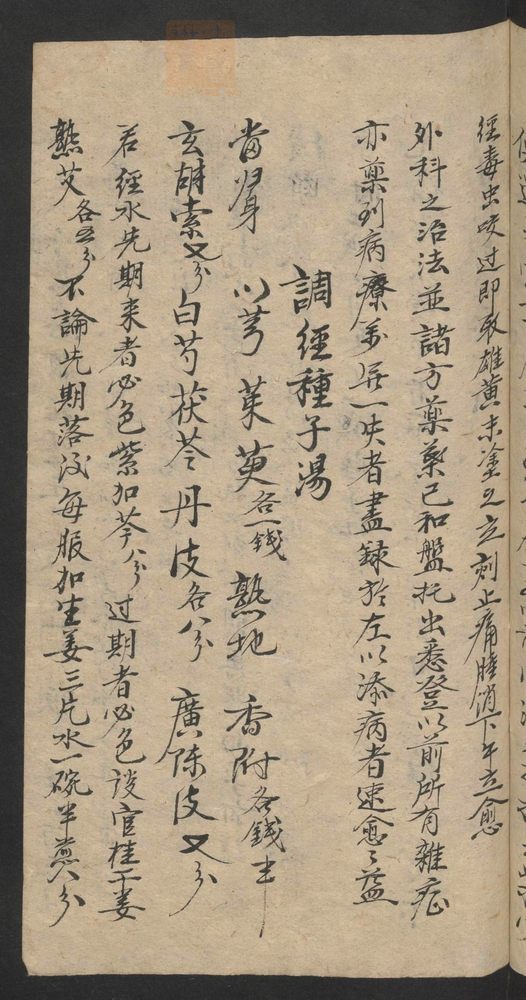 經毒虫咬过即取雄黄末塗之立刻止痛腫消下午立愈
外科之治法並諸方藥案已和盤托出悉登以前所有雜症
亦藥到病療万無一失者盡録於左以添病者速愈之益
調經種子湯
當歸身 川芎 茱萸各一錢 熟地 香附各錢半
玄胡索又分 白芍 茯苓 丹皮各八分 廣陳皮又分
若經水先期来者必色紫加芩八分 过期者必色淡官桂干姜
熟艾各五分 不論先期落後每服加生姜三片水一碗半煎八分